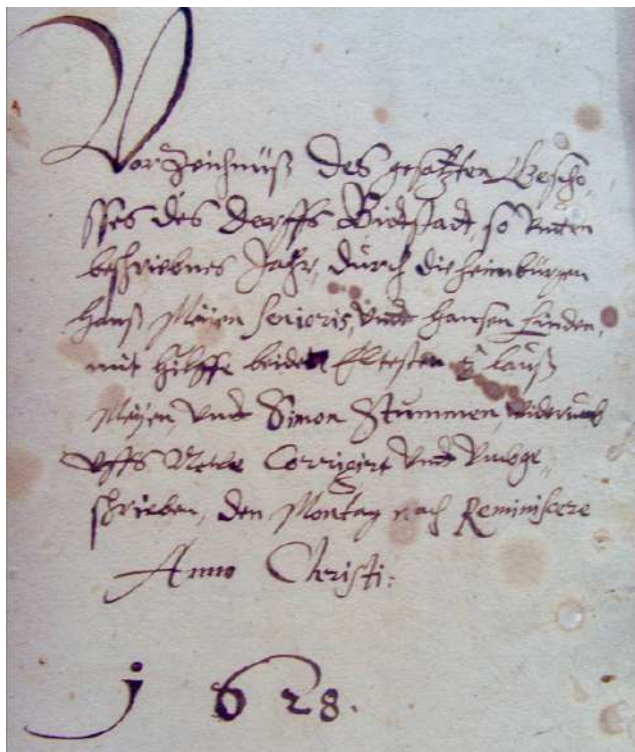 VorZeichnüß des gesatzten Gescho,
sses des Dorffs Bietstadt, so unden
beschriebnes Jahr, durch die heimbürgen
Hanß Meÿen Senioris, undt Hansen Linden,
mit Hülffe beider Eltesten Claüß
Meÿen, undt Simon Stummen, widerumb
uffs Newe Corrigirt undt Umbge,
schrieben, den Montag nach Reminiscere
Anno Christi:
1628.